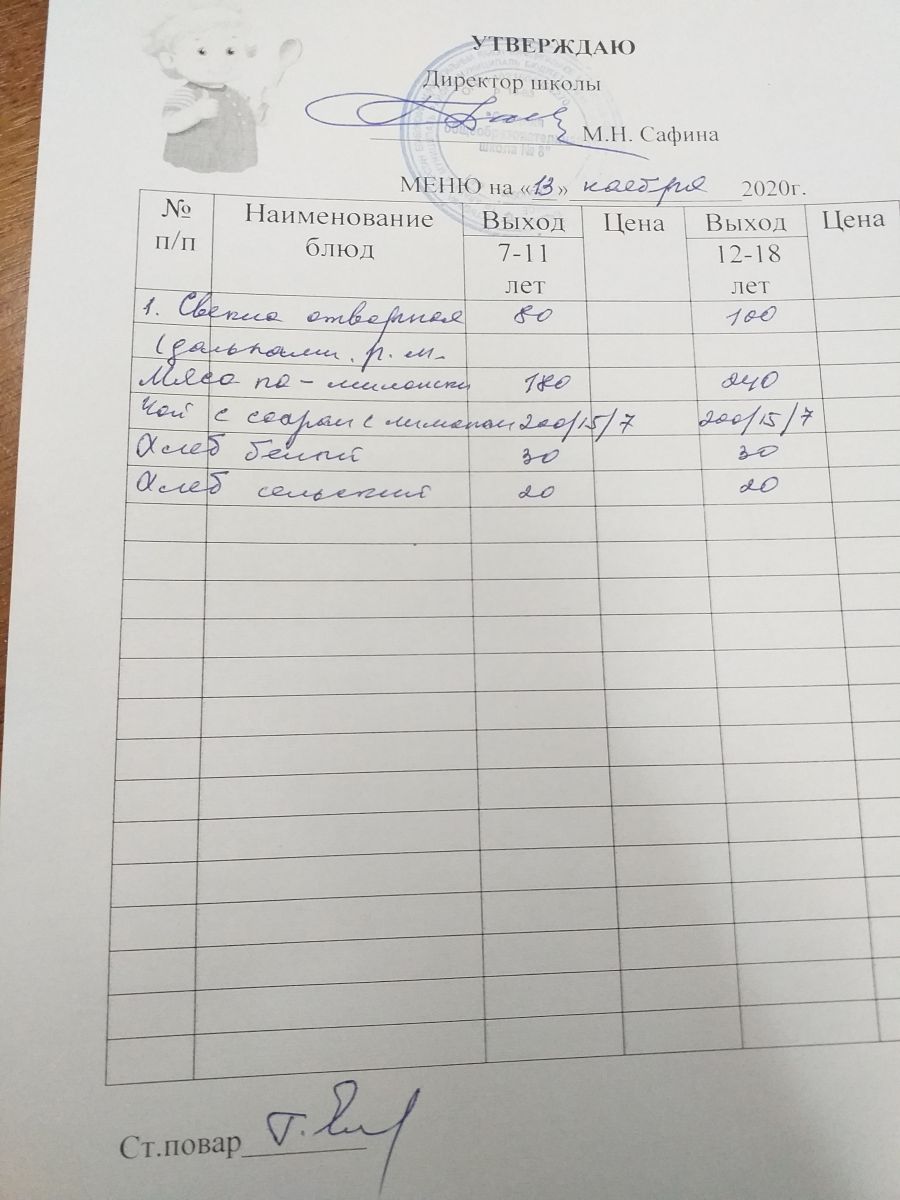 УТВЕРЖДАЮ
Директор школы
М.Н. Сафина
общеобразовательная
школа № 8"
МЕНЮ на «13» ноября 2020г.
№ п/п Наименование блюд Выход 7-11 лет Цена Выход 12-18 лет Цена
1. Свекла отварная 80 100
(дольками. р. м.
Мясо по-милански 180 240
Чай с сахаром с лимоном 200/15/7 200/15/7
Хлеб белый 30 30
Хлеб сельский 20 20
Ст.повар